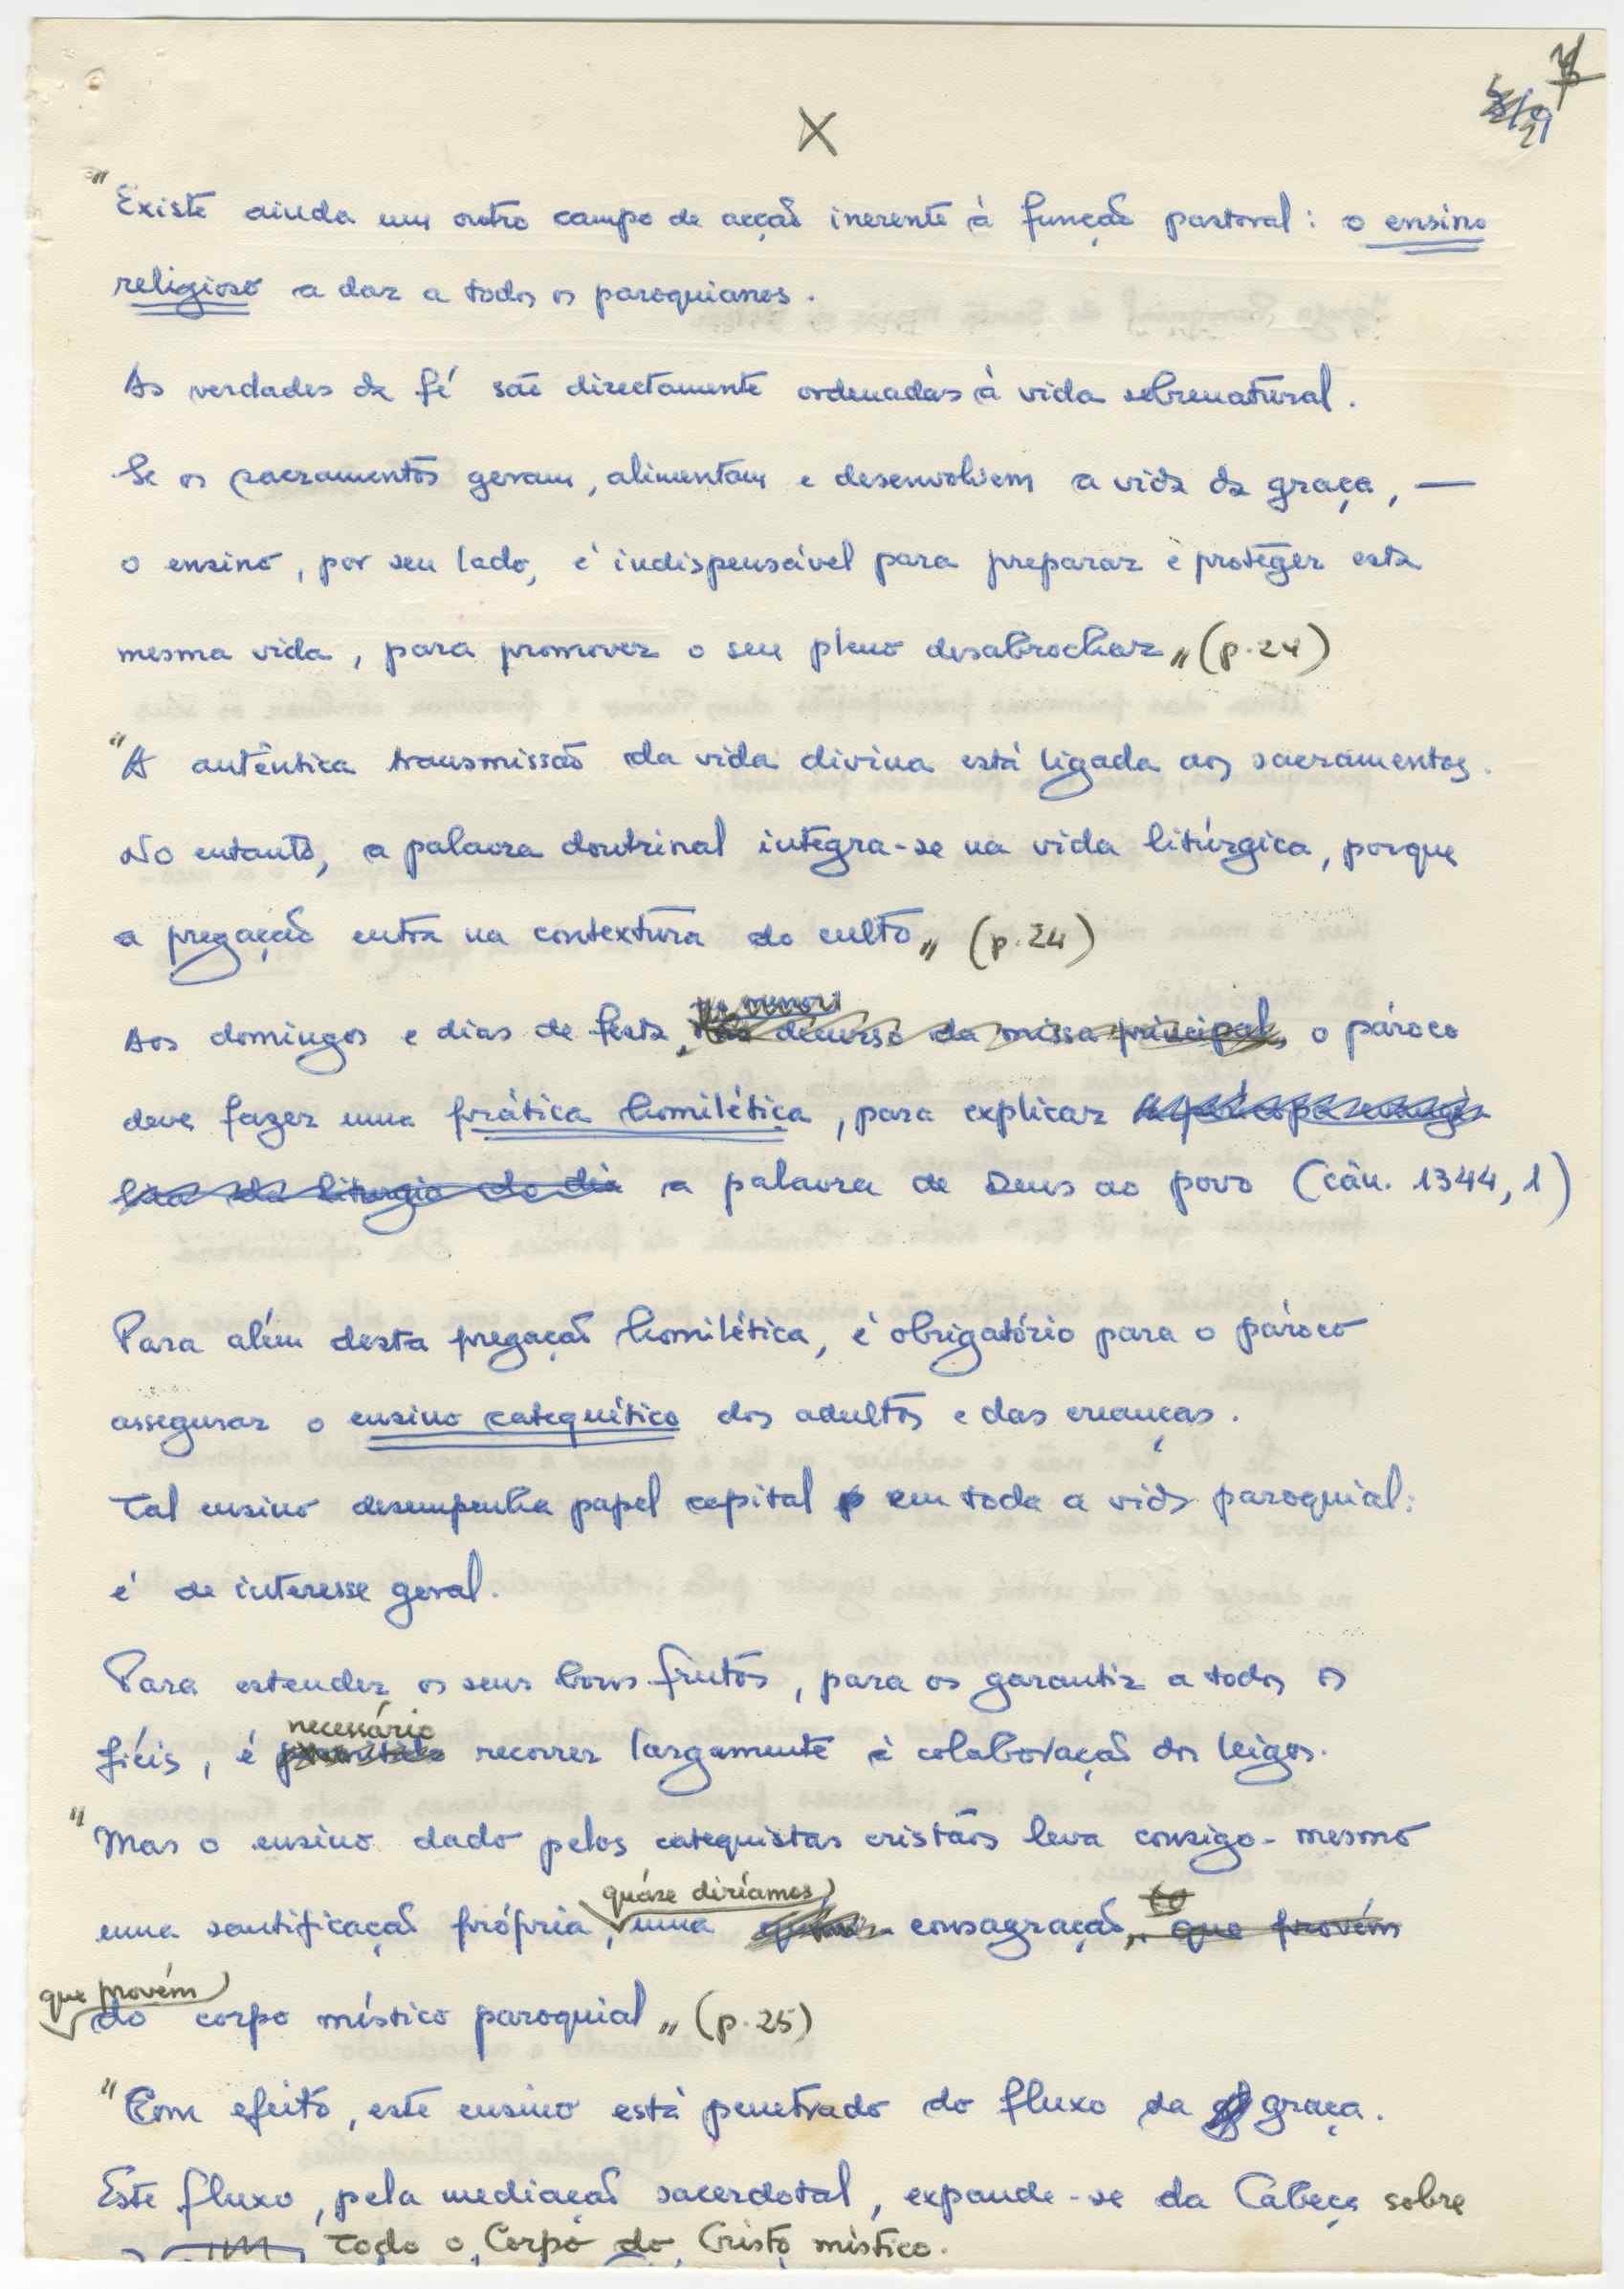 X
"Existe ainda um outro campo de acção inerente à função pastoral: o ensino
religioso a dar a todos os paroquianos.
As verdades da fé são directamente ordenadas à vida sobrenatural.
Se os sacramentos geram, alimentam e desenvolvem a vida da graça, —
o ensino, por seu lado, é indispensável para preparar e proteger esta
mesma vida, para promover o seu pleno desabrochar" (p. 24)
"A autêntica transmissão da vida divina está ligada aos sacramentos.
No entanto, a palavra doutrinal integra-se na vida litúrgica, porque
a pregação entra na contextura do culto" (p. 24)
Aos domingos e dias de festa, decurso da missa principal, o pároco
deve fazer uma prática homilética, para explicar
da liturgia do dia a palavra de Deus ao povo (cân. 1344, 1)
Para além desta pregação homilética, é obrigatório para o pároco
assegurar o ensino catequético dos adultos e das crianças.
Tal ensino desempenha papel capital em toda a vida paroquial:
é de interesse geral.
Para estender os seus bons frutos, para os garantir a todos os
necessário
fiéis, é recorrer largamente à colaboração dos leigos.
"Mas o ensino dado pelos catequistas cristãos leva consigo-mesmo
quáse diríamos
uma santificação própria, uma consagração, que provém
que provém
do corpo místico paroquial" (p. 25)
"Com efeito, este ensino está penetrado do fluxo da graça.
Este fluxo, pela mediação sacerdotal, expande-se da Cabeça sobre
todo o Corpo do Cristo místico.